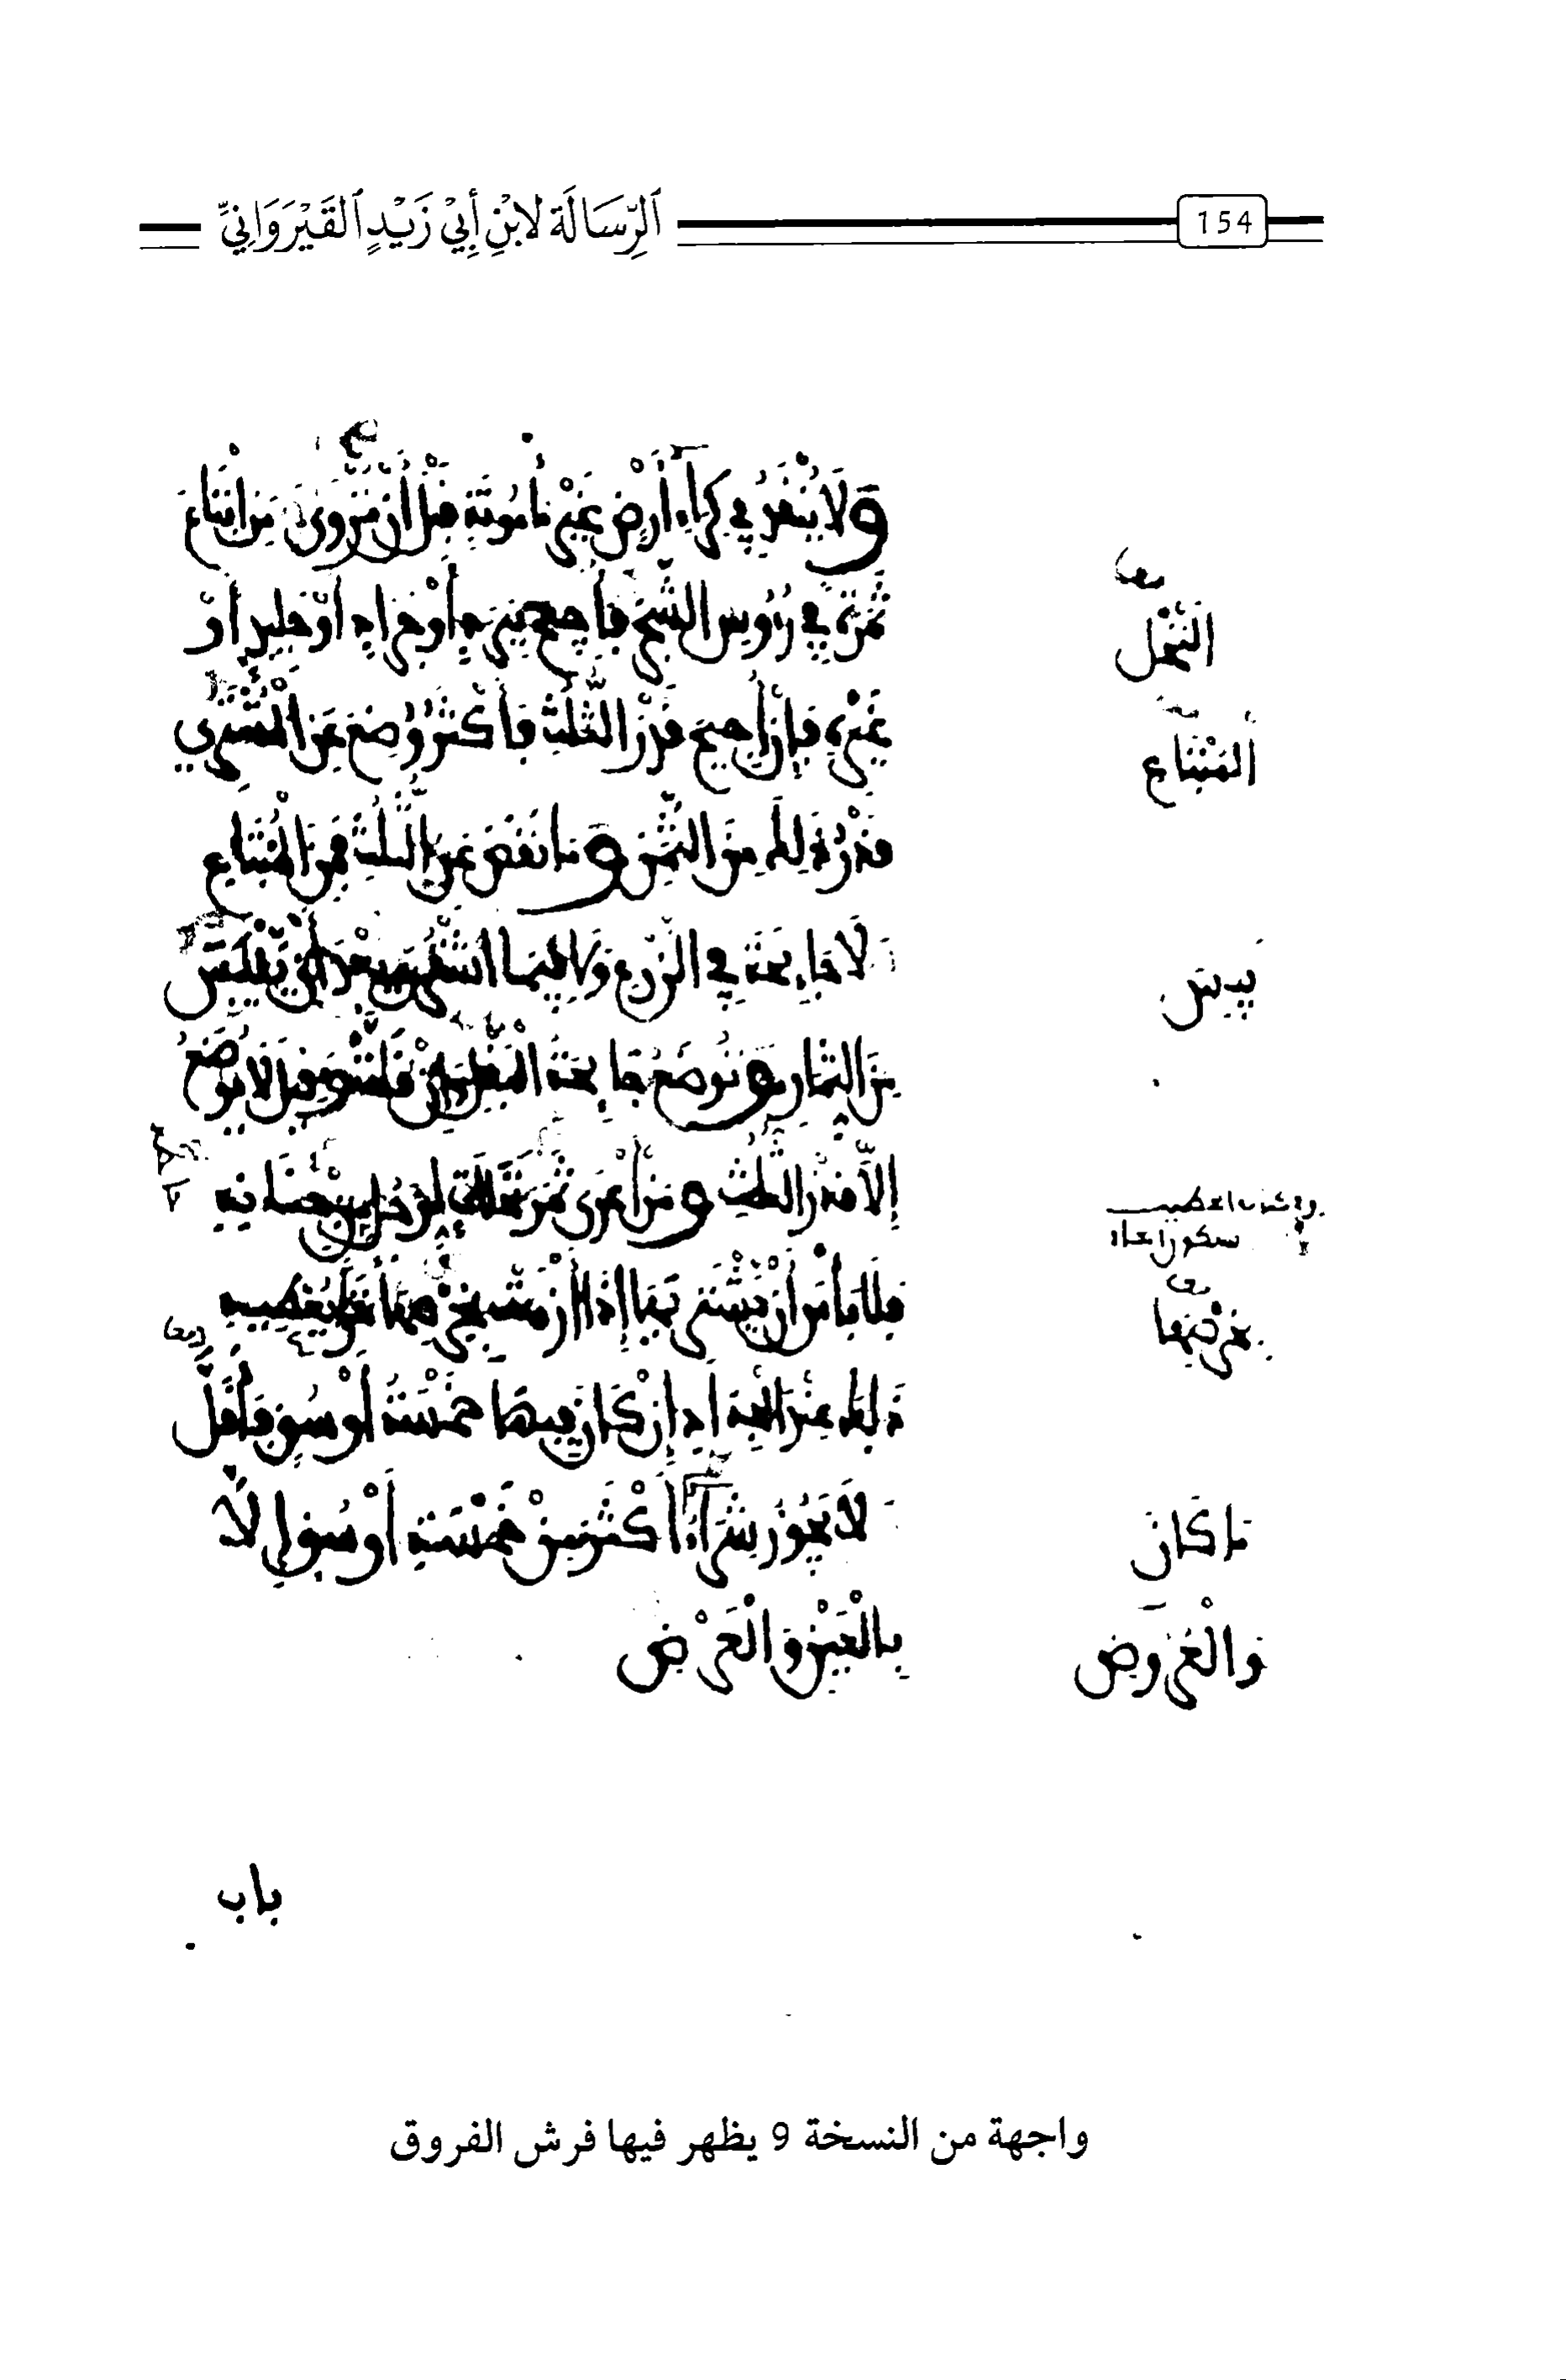 154
ٱلرِّسَالَة لابْنِ أَبِيْ زَيْدٍ ٱلقَيْرَوَانِيِّ
وَلَا يُنْقَدُ فِي كِرَاءِ أَرْضٍ غَيْرِ مَأْمُونَةٍ قَبْلَ أَنْ تَرْوَى وَمَنِ ابْتَاعَ
ثَمَرَةً فِي رُؤُوسِ الشَّجَرِ فَأُجِيحَ بِبَرَدٍ أَوْ جَرَادٍ أَوْ جَلِيدٍ أَوْ
غَيْرِهِ فَإِنْ أُجِيحَ قَدْرُ الثُّلُثِ فَأَكْثَرُ وُضِعَ عَنِ الْمُشْتَرِي
قَدْرُ ذَلِكَ مِنَ الثَّمَنِ وَمَا نَقَصَ عَنِ الثُّلُثِ فَمِنَ الْمُبْتَاعِ
وَلَا جَائِحَةَ فِي الزَّرْعِ وَلَا فِيمَا اشْتُرِيَ بَعْدَ أَنْ يَبِسَ
مِنَ الثِّمَارِ وَتُوضَعُ جَائِحَةُ الْبُقُولِ وَإِنْ قَلَّتْ وَقِيلَ لَا يُوضَعُ
إِلَّا قَدْرُ الثُّلُثِ وَمَنْ أَعْرَى ثَمَرَ نَخَلَاتٍ لِرَجُلٍ مِنْ جِنَانِهِ
فَلَا بَأْسَ أَنْ يَشْتَرِيَهَا إِذَا أَزْهَتْ بِخَرْصِهَا تَمْرًا يُعْطِيهِ
ذَلِكَ عِنْدَ الْجَدَادِ إِنْ كَانَ فِيهَا خَمْسَةُ أَوْسُقٍ فَأَقَلُّ
وَلَا يَجُوزُ شِرَاءُ أَكْثَرَ مِنْ خَمْسَةِ أَوْسُقٍ إِلَّا
بِالْعَيْنِ وَالْعَرْضِ
النَّخْلِ
الْمُبْتَاعِ
يَيْبَسَ
بِخَرْصِهَا
مَا كَانَ
وَالْعُرُوضِ
باب
واجهة من النسخة 9 يظهر فيها فرش الفروق